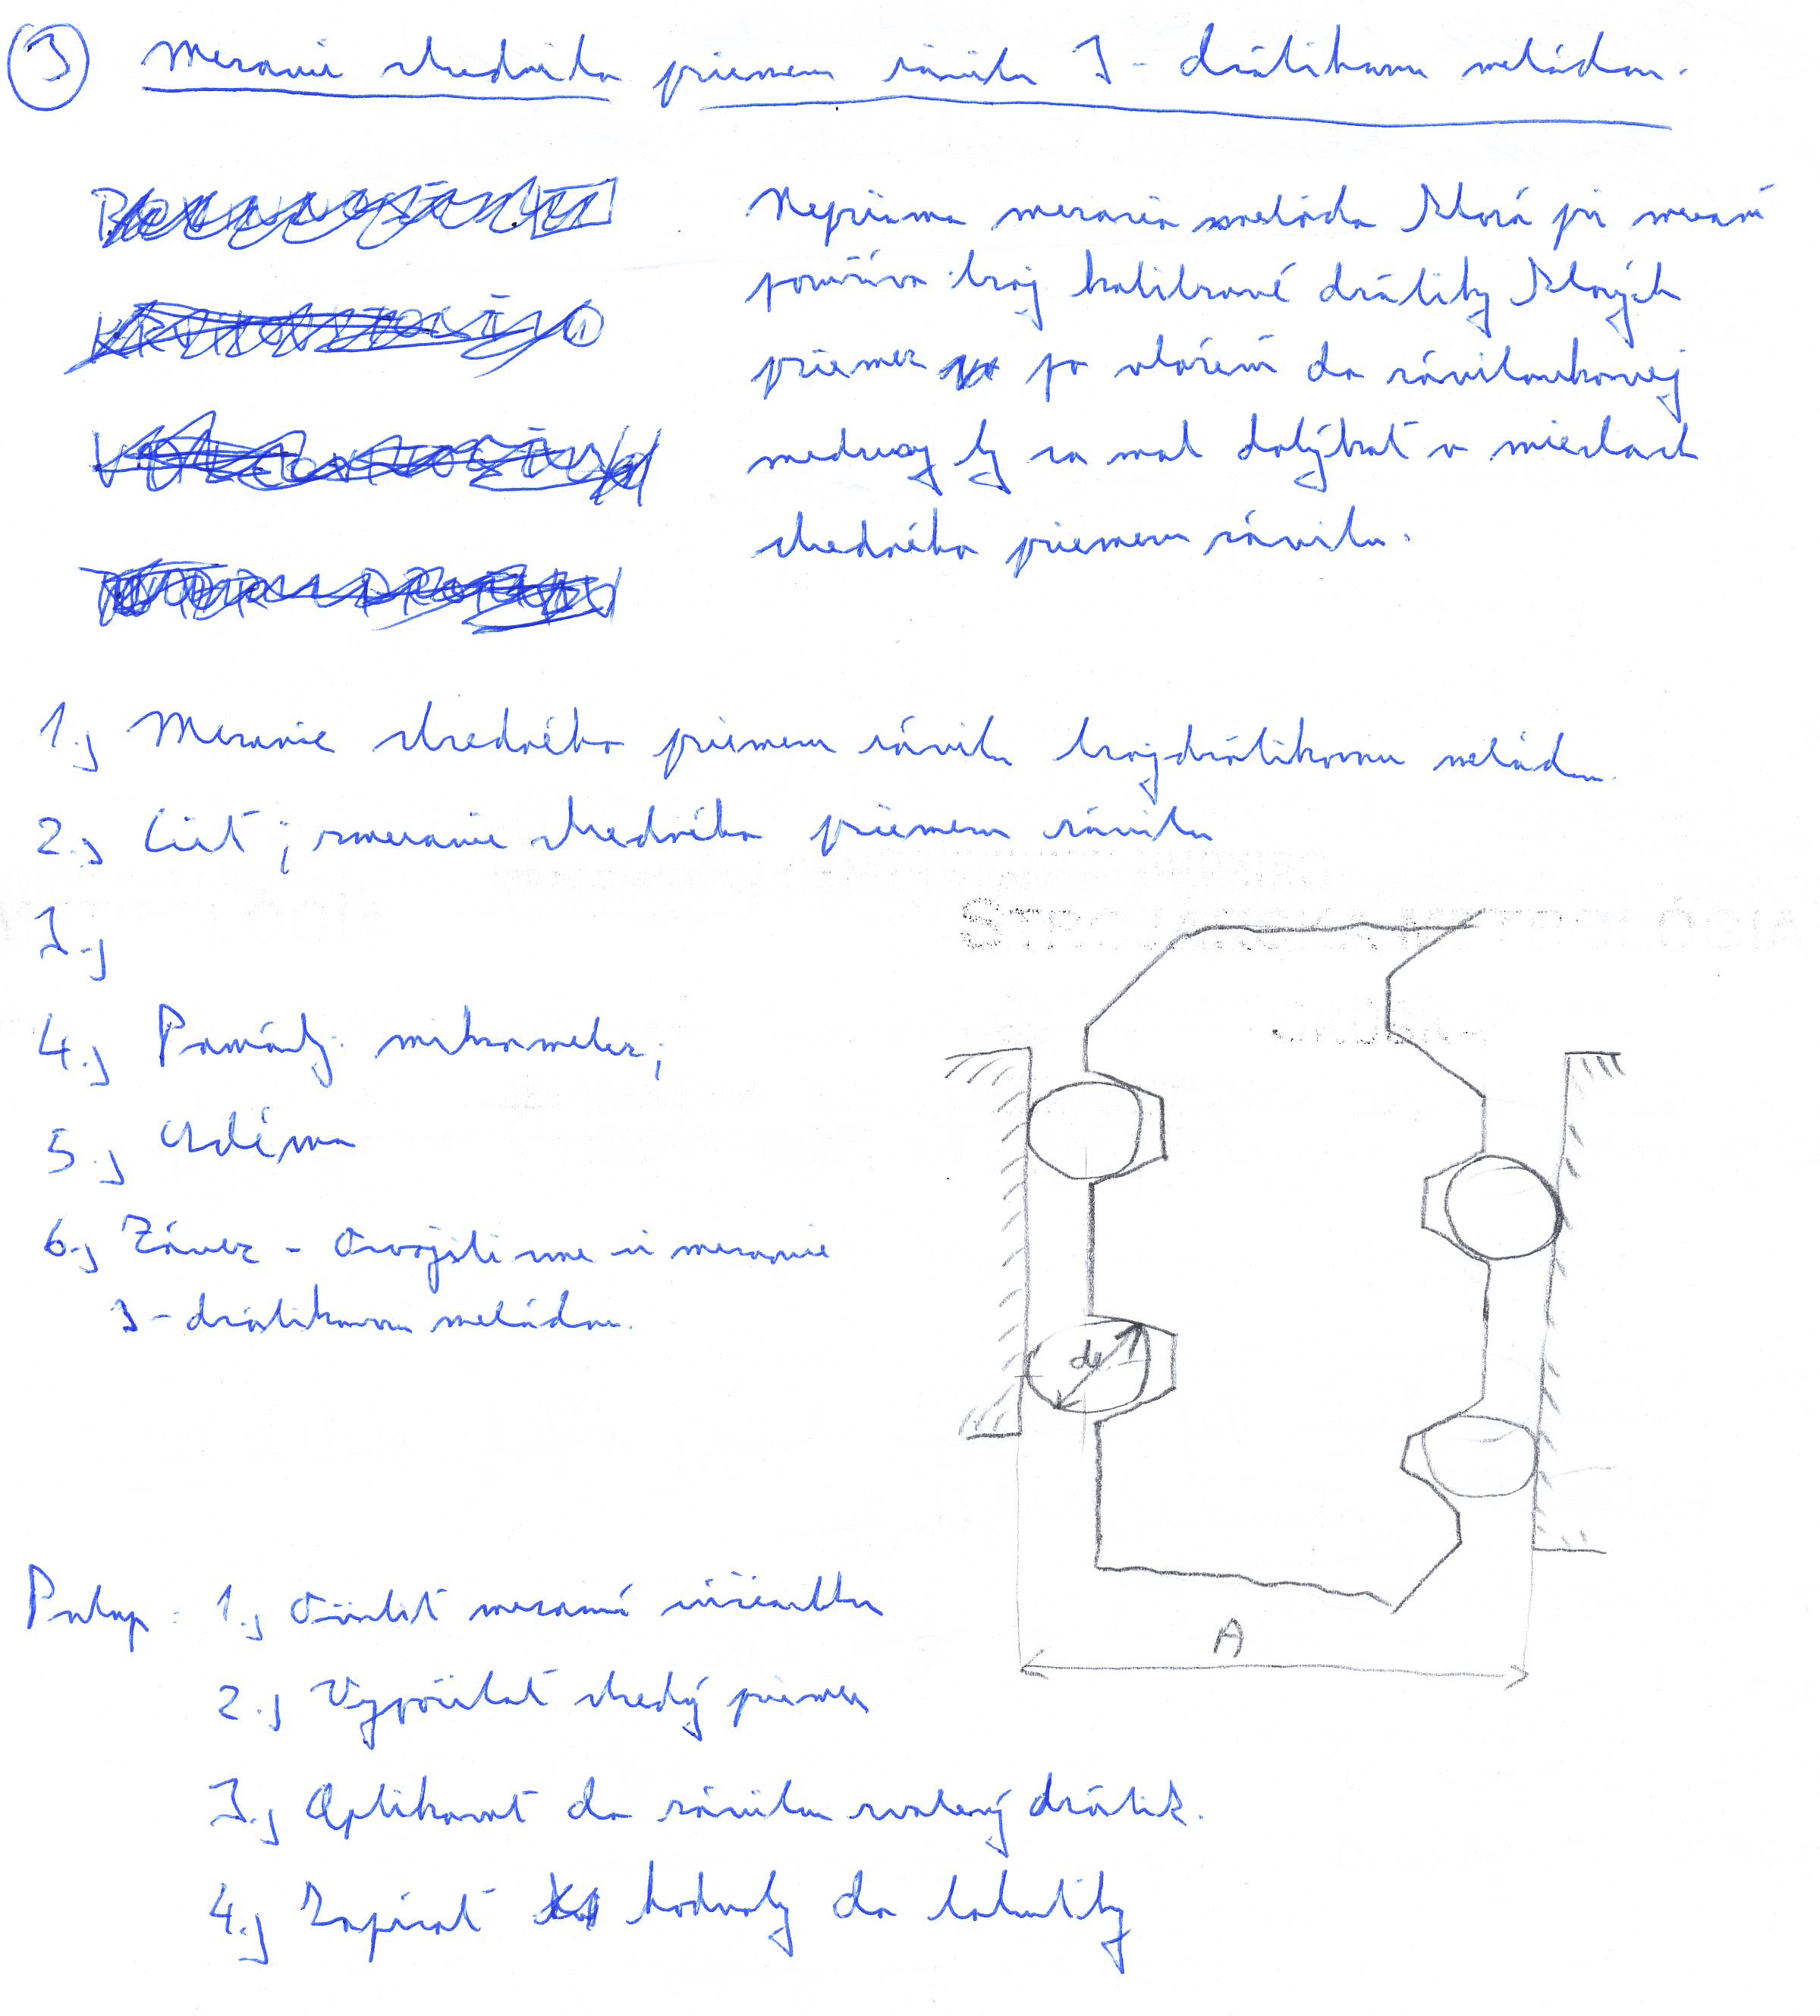 3 Meranie stredného priemeru závitu 3-drôtikovou metódou.
Nepriama meracia metóda ktorá pri meraní
používa troj kalibrované drôtiky ktorých
priemer po vložení do závitoukovej
medzery by sa mal dotýkať v miestach
stredného priemeru závitu.
1.) Meranie stredného priemeru závitu trojdrôtikovou metódou
2.) Cieľ ; zmeranie stredného priemeru závitu
3.)
STROJÁRSKA METROLÓGIA
4.) Pomôcky: mikrometer;
5.) Schéma
6.) Záver - Osvojili sme si meranie
3-drôtikovou metódou.
d
A
Postup : 1.) Očistiť meranú súčiastku
2.) Vypočítať stredný priemer
3.) Aplikovať do závitu zvolený drôtik.
4.) Zapísať hodnoty do tabuľky